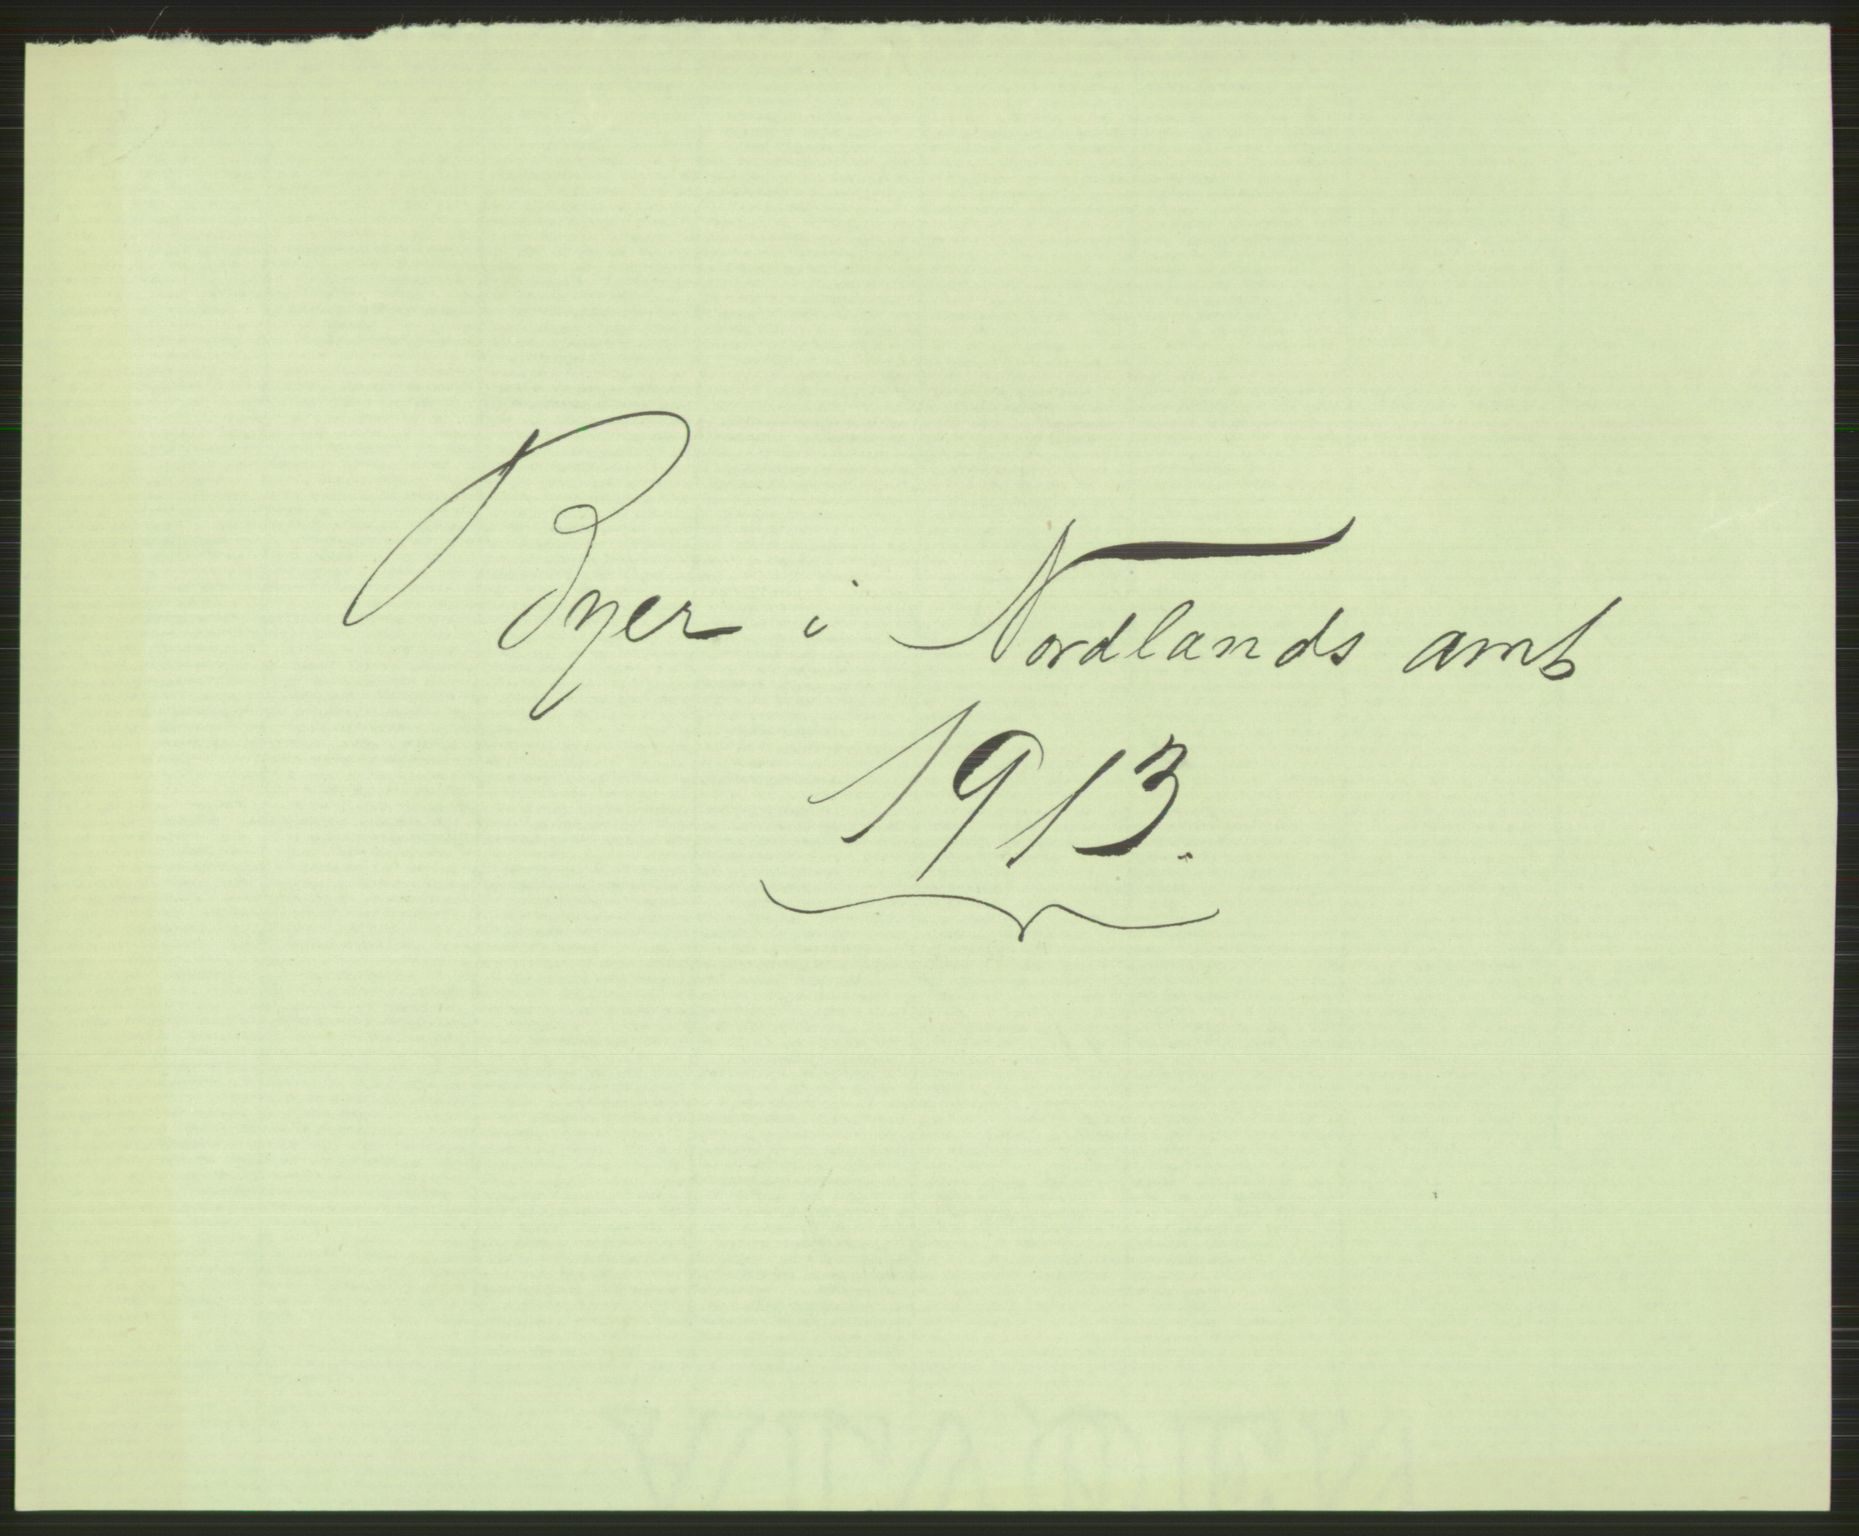 Byer i Nordlands amt
1913.